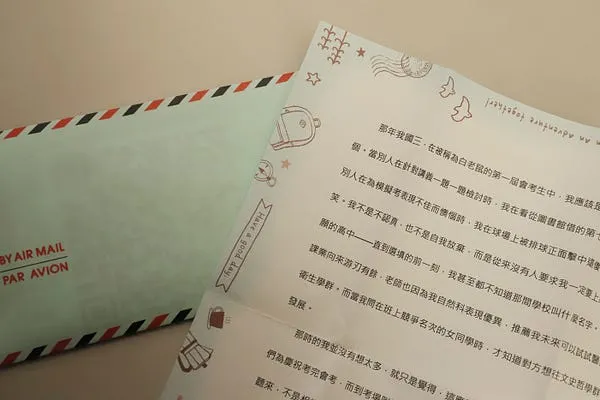 BY AIR MAIL
PAR AVION
an adventure together!
Have a good day.
那年我國三,在被稱為白老鼠的第一屆會考生中,我應該是
個。當別人在針對講義一題一題檢討時,我在看從圖書館借的第七
別人在為模擬考表現不佳而懊惱時,我在球場上被排球正面擊中
笑。我不是不認真,也不是自我放棄,而是從來沒有人要求我一定要上
願的高中——直到選填的前一刻,我甚至都不知道那間學校叫什麼名字。
課業向來游刃有餘,老師也因為我自然科表現優異,推薦我未來可以試試醫
衛生學群。而當我問在班上競爭名次的女同學時,才知道對方想往文史哲學群
發展。
那時的我並沒有想太多,就只是覺得,這應
們為慶祝考完會考,而到考場
聽來,不是